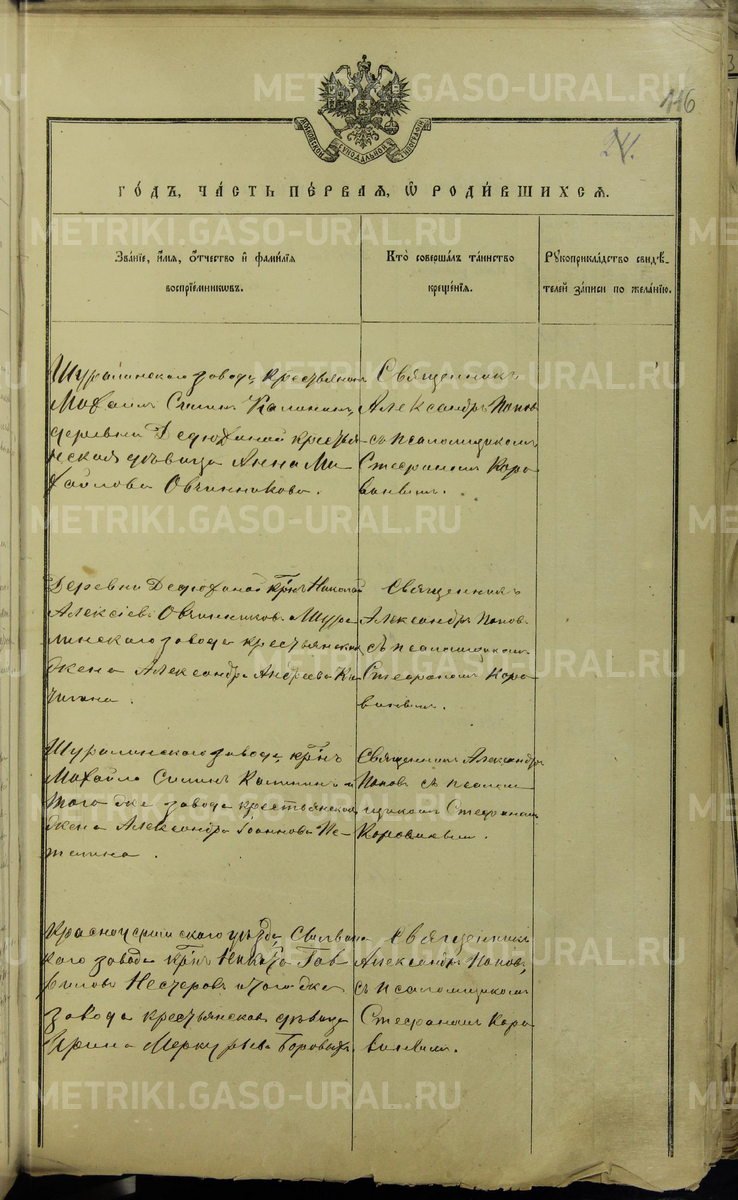 METRIKI.GASO-URAL.RU
116
24.
МОСКОВСКОЙ СѴНОДАЛЬНОЙ ТИПОГРАФІИ
ГОДЪ, ЧАСТЬ ПЕРВАЯ, Ѿ РОДИВШИХСЯ.
Званіе, имя, отчество и фамилія воспріемниковъ.
Кто совершалъ таинство крещенія.
Рукоприкладство свидѣтелей записи по желанію.
Шуралинскаго завода крестьянинъ
Михаилъ Силинъ Калининъ,
деревни Дедюхиной крестья
нская дѣвица Анна Ми
хайлова Овчинникова.
Священникъ
Александръ Поповъ
съ псаломщикомъ
Стефаномъ Коро
Деревни Дедюхиной кр̃нъ Николай
Алексіевъ Овчинниковъ и Шура
линскаго завода крестьянская
жена Александра Андреева Ки
Священникъ
Александръ Поповъ
съ псаломщикомъ
Стефаномъ Коро
Шуралинскаго завода кр̃нъ
Михаилъ Силинъ Калининъ и
того же завода крестьянская
жена Александра Іоаннова
Священникъ Александръ
Поповъ съ псалом
щикомъ Стефаномъ
Красноуфимскаго уѣзда, Сылвин
скаго завода кр̃нъ Никита Гав
риловъ Нестеровъ и того же
завода крестьянская дѣвица
Ирина Меркурьева Боровыхъ.
Священникъ
Александръ Поповъ
съ псаломщикомъ
Стефаномъ Коро